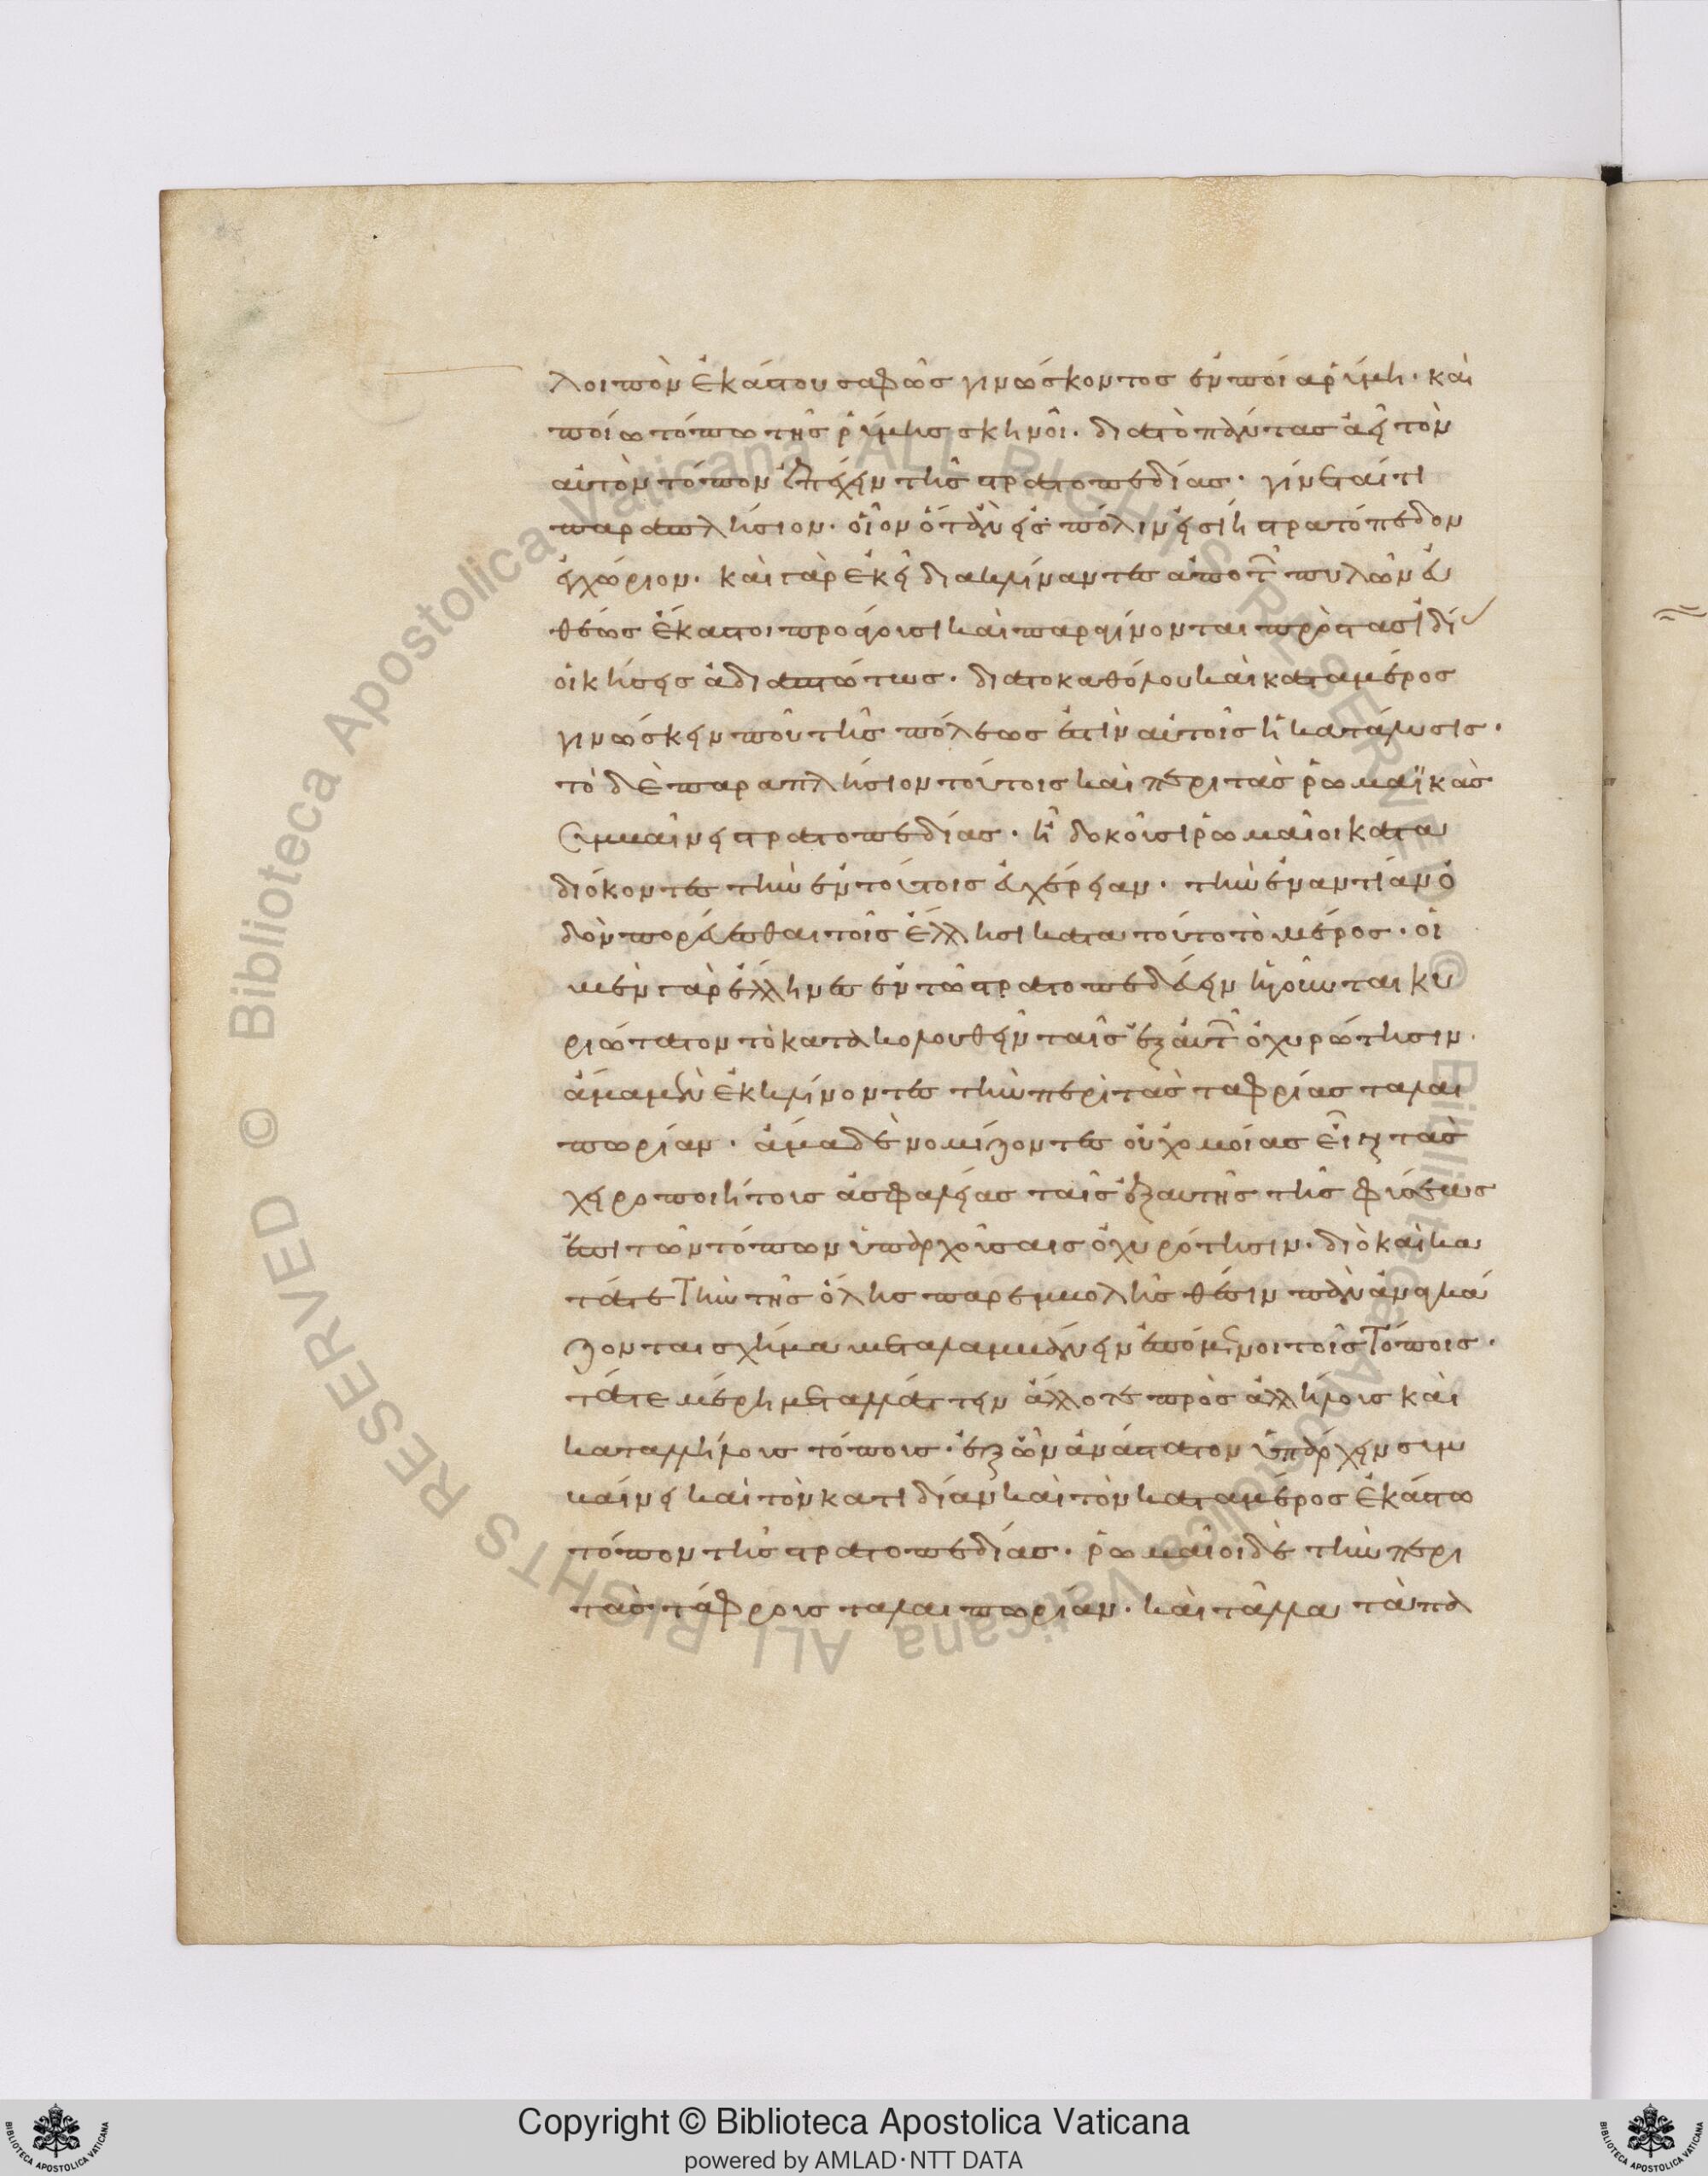 λοιπὸν ἑκάστου σαφῶς γινώσκοντος ἐν ποίαι ῥύμηι· καὶ
ποίω τόπω τῆς ῥύμης σκηνοῖ· διὰ τὸ πάντας ἀεὶ τὸν
αὐτὸν τόπον ἐπέχειν τῆς στρατοπεδίας· γίνεταί τι
παραπλήσιον· οἷον ὅταν εἰς πόλιν εἰσίηι στρατόπεδον
ἐγχώριον· καὶ γὰρ ἐκεῖ διακλίναντες ἀπὸ τῶν πυλῶν εὐ
θέως ἕκαστοι προάγουσι καὶ παραγίνονται πρὸς τὰς ἰδίας
οἰκήσεις ἀδιαπτώτως· διὰ τὸ καθόλου καὶ κατὰ μέρος
γινώσκειν ποῦ τῆς πόλεως ἐστὶν αὐτοῖς ἡ κατάλυσις·
τὸ δὲ παραπλήσιον τούτοις καὶ περὶ τὰς ῥωμαϊκὰς
συμβαίνει στρατοπεδίας· ἧι δοκοῦσι ῥωμαῖοι κατα
διώκοντες τὴν ἐν τούτοις εὐχέρειαν· τὴν ἐναντίαν ὁ
δὸν πορεύεσθαι τοῖς ἕλλησι κατὰ τοῦτο τὸ μέρος· οἱ
μὲν γὰρ ἕλληνες ἐν τῶ στρατοπεδεύειν ἡγοῦνται κυ
ριώτατον τὸ κατακολουθεῖν ταῖς ἐξ αὐτῶν ὀχυρότησιν·
ἅμα μὲν ἐκκλίνοντες τὴν περὶ τὰς ταφρείας ταλαι
πωρίαν· ἅμα δὲ νομίζοντες οὐχ ὁμοίας εἶναι τὰς
χειροποιήτους ἀσφαλείας ταῖς ἐξ αὐτῆς τῆς φύσεως
ἐπὶ τῶν τόπων ὑπαρχούσαις ὀχυρότησιν· διὸ καὶ κα
τά τε τὴν τῆς ὅλης παρεμβολῆς θέσιν πᾶν ἀναγκά
ζονται σχῆμα μεταλαμβάνειν ἑπόμενοι τοῖς τόποις·
τά τε μέρη μεταλλάττειν ἄλλοτε πρὸς ἀλλήλους καὶ
καταλλήλους τόπους· ἐξ ὧν ἀνάστατον ὑπάρχειν συμ
βαίνει καὶ τὸν κατ ἰδίαν καὶ τὸν κατὰ μέρος ἑκάστω
τόπον τῆς στρατοπεδίας· ῥωμαῖοι δὲ τὴν περὶ
τὰς τάφρους ταλαιπωρίαν· καὶ τἄλλα τὰ πα